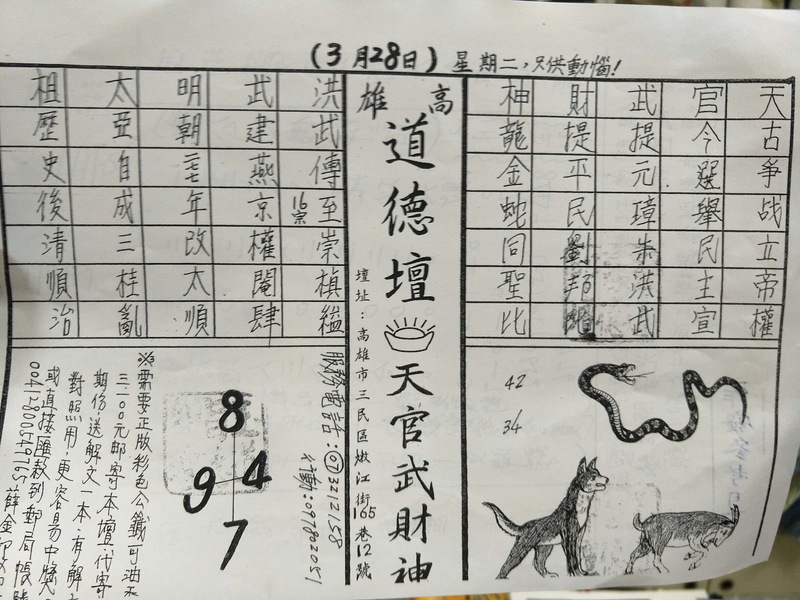 (3月28日)星期二,只供動惱!
天古爭战立帝權
官今選舉民主宣
武提元璋朱洪武
財提平民劉邦
神龍金蛇同聖比
42
34
高雄
道德壇
天官武財神
壇址:高雄市三民區嫩江街165巷12號
洪武傳至崇楨縊
16宗
武建燕京權閹肆
明朝年改太順
太亞自成三桂亂
祖歷史後清順治
服務電話:(07)3212158
行動:097802051
8
9 4
7
※需要正版彩色公籤可油
三100元郵寄本壇代寄
期份送解文一本.有解
對照用.更容易中獎
或直接匯款到郵局帳